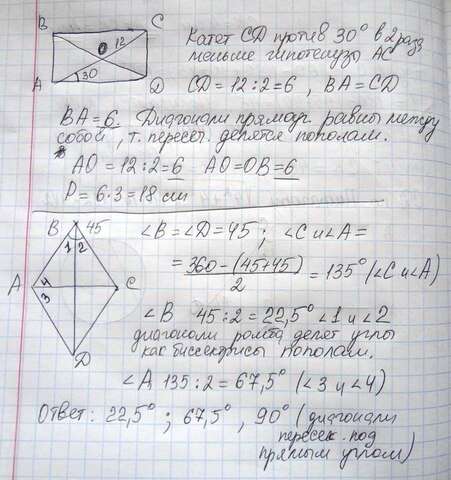 B C
12
O
30
A D
Катет CD против 30° в 2 раза
меньше гипотенузы AC
CD = 12:2=6 , BA=CD
BA=6. Диагонали прямоуг. равны между
собой, т. пересеч. делятся пополам.
AO=12:2=6 AO=OB=6
P=6·3=18 см
B 45
1 2
A 4 C
3
D
∠B=∠D=45; ∠C и ∠A=
= 360-(45+45) / 2 = 135° (∠C и ∠A)
∠B 45:2=22,5° ∠1 и ∠2
диагонали ромба делят углы
как биссектрисы пополам.
∠A 135:2=67,5° (∠3 и ∠4)
Ответ: 22,5° ; 67,5° , 90° (диагонали
пересек. под
прямым углом)